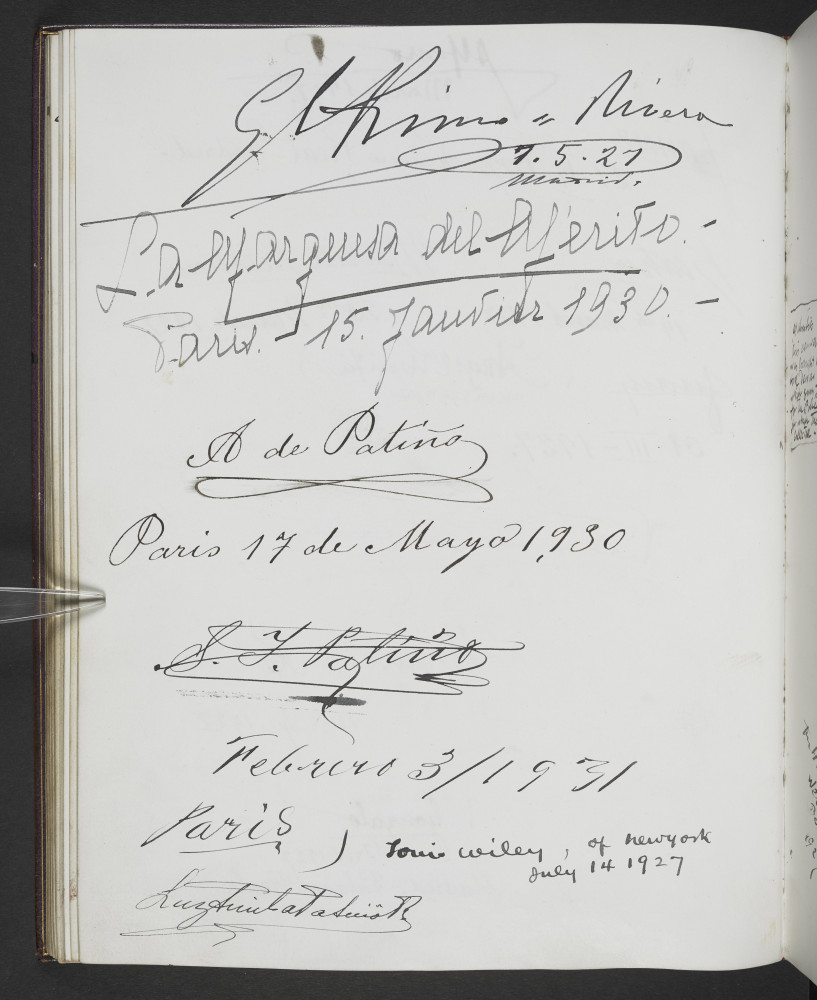 Primo de Rivera
7.5.27
Madrid.
La Marquesa del Mérito. -
Paris. - 15. Janvier 1930. -
A de Patiño
Paris 17 de Mayo 1930
S. I. Patiño
Febrero 3/1931
Paris
Louis Wiley, of newyork
July 14 1927
Luz Mila Patiño R